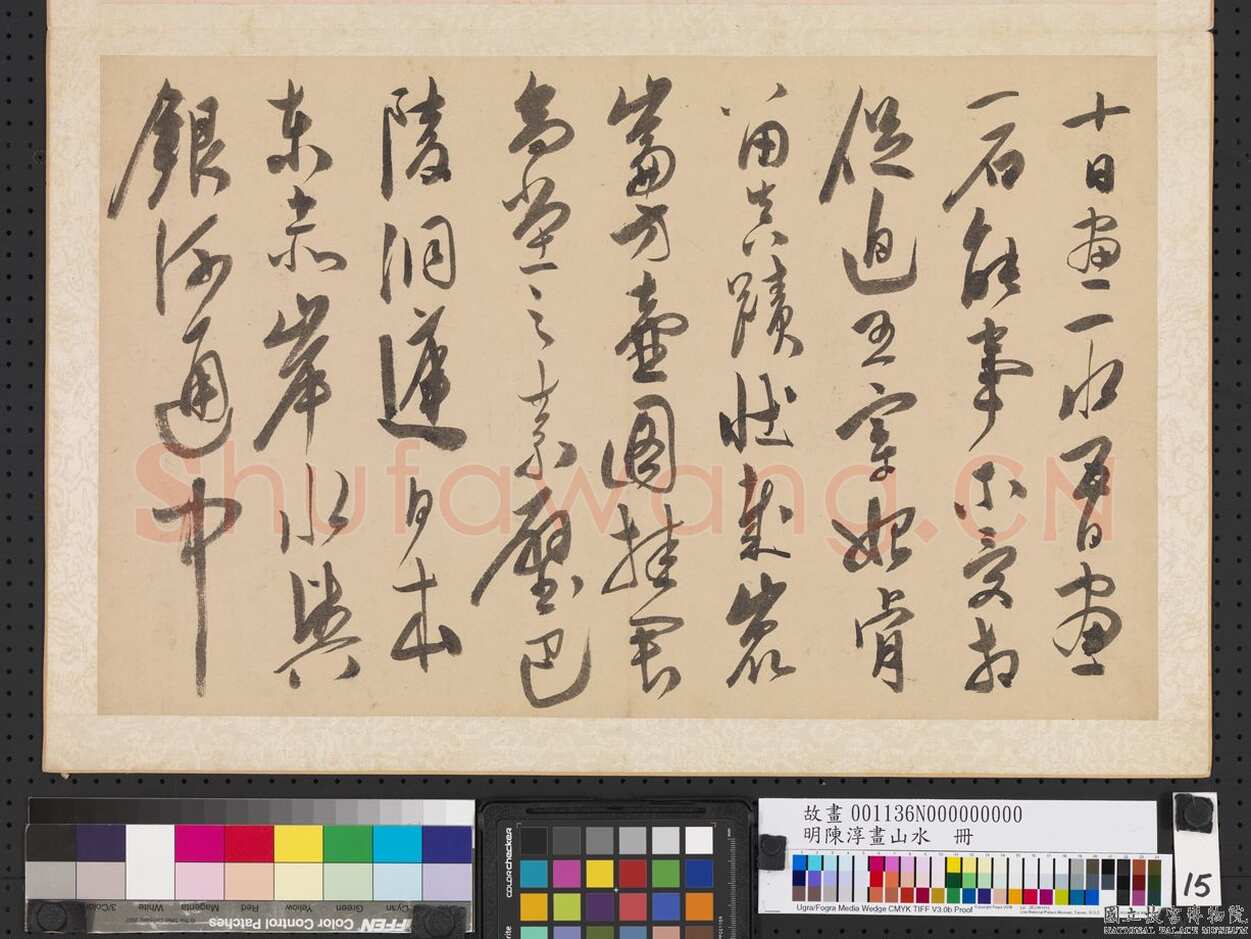 十日畫一水五日畫
一石能事不受相
促迫王宰始肯
留真蹟壯哉崑
崙方壺圖挂君
高堂之素壁巴
陵洞庭日本
東赤岸水與
銀河通中
Shufawang.CN
故畫 001136N000000000
明陳淳畫山水 冊
15
3/Color Black White Magenta Red Yellow Green Cyan Blue
FFEN Color Control Patches
colorchecker
Ugra/Fogra Media Wedge CMYK TIFF V3.0b Proof
國立故宮博物院
NATIONAL PALACE MUSEUM